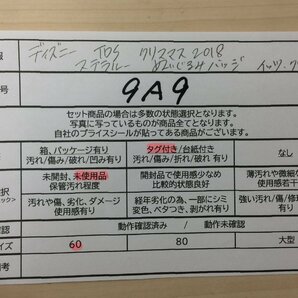 報 ディズニー TDS クリスマス 2018
ステラルー ぬいぐるみバッジ イッツ・ク
号 9A9
セット商品の場合は多数の状態選択となります。
写真に写っているものが商品全てとなります。
自社のプライスシールが貼ってある場合有ります。
箱、パッケージ有り タグ付き/台紙付き なし
汚れ/傷み/破れ/凹み有り 汚れ/傷み/折れ/破れ 有り
選択 未開封、未使用品 開封品で使用感少なめ 薄汚れや微細な
ック> 保管汚れ程度 比較的状態良好 使用感若干
汚れや傷、劣化、ダメージ 経年劣化の為、一部にシミ 強い汚れ/傷/
使用感有り 変色、ベタつき、剥がれ有り 有り
動作確認済み / 動作未確認
イズ 60 80 大型
備考